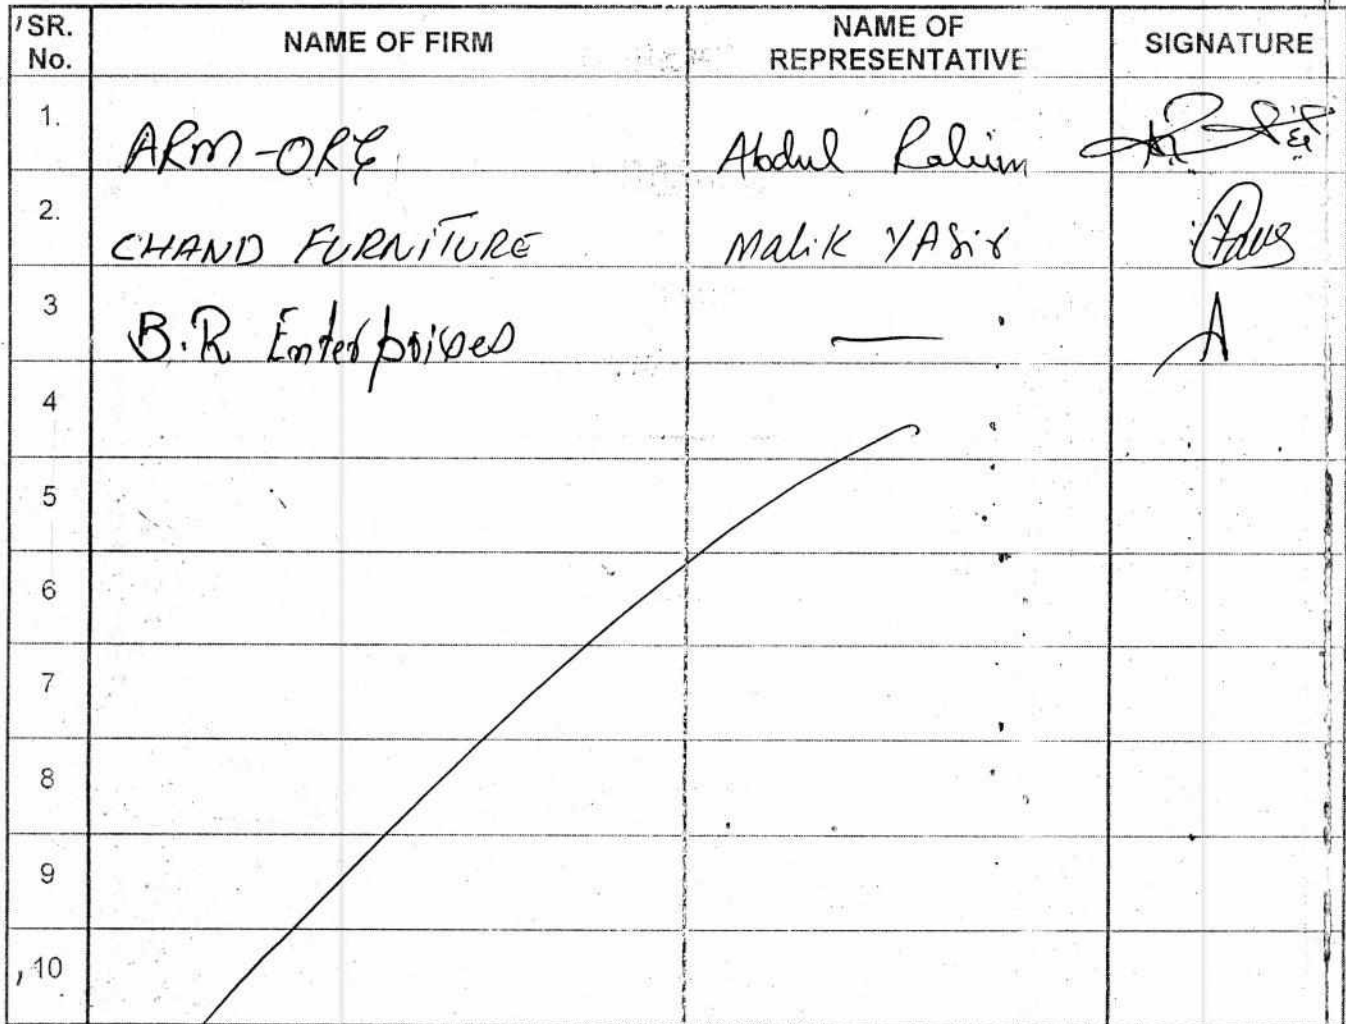 SR. No. NAME OF FIRM NAME OF REPRESENTATIVE SIGNATURE
1. ARM-ORG Abdul Rahim
2. CHAND FURNITURE Malik YASir
3 B.R Enterprises — A
4
5
6
7
8
9
10